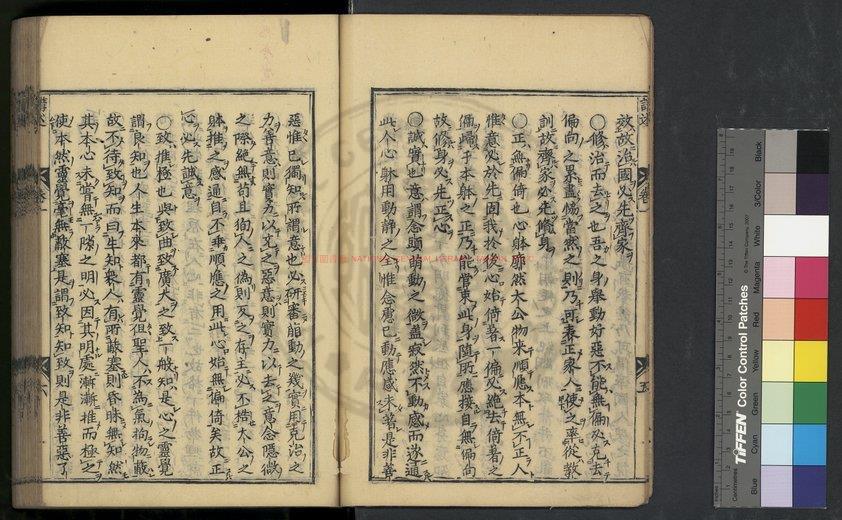 放故治國必先齊家
〇修治而去之也吾之身舉動好惡不能無偏必克去
偏向之累盡協當然之則乃可表正家人使之率從教
訓故齊家必先脩身
〇正無偏倚也心躰廓然大公物來順應本無不正人
惟意必於先固我於後心始倚著一偏必絕去倚著之
偏歸于本躰之正乃能管束此身隨所應接自無偏向
故修身必先正心
〇誠實也意謂念頭萌動之微蓋寂然不動感而遂通
此个心躰用動靜之
惟念慮已動應感未著是非善
惡惟已獨知所謂意也必研審能動之幾實用克治之
力善意則實力以充之惡意則實力以去之意念隱微
之際絕無苟且狥人之偽則反之存主必不梏太公之
躰推之感通自不乖順應之用此心始無偏倚矣故正
心必先誠意
〇致推極也與致曲致廣大之致一般知是心之靈覺
謂良知也人生本來都有靈覺但聖人不為氣拘物蔽
故不待致知而曰生知衆人有所蔽塞則昏昧無知然
其本心未嘗無一隙之明必因其明處漸漸推而極之
使本然靈覺毫無蔽塞是謂致知知致則是非善惡了
講述
卷一
五
六
TIFFEN Color Control Patches
© The Tiffen Company, 2007
Inches
Centimetres
Blue
Cyan
Green
Yellow
Red
Magenta
White
3/Color
Black